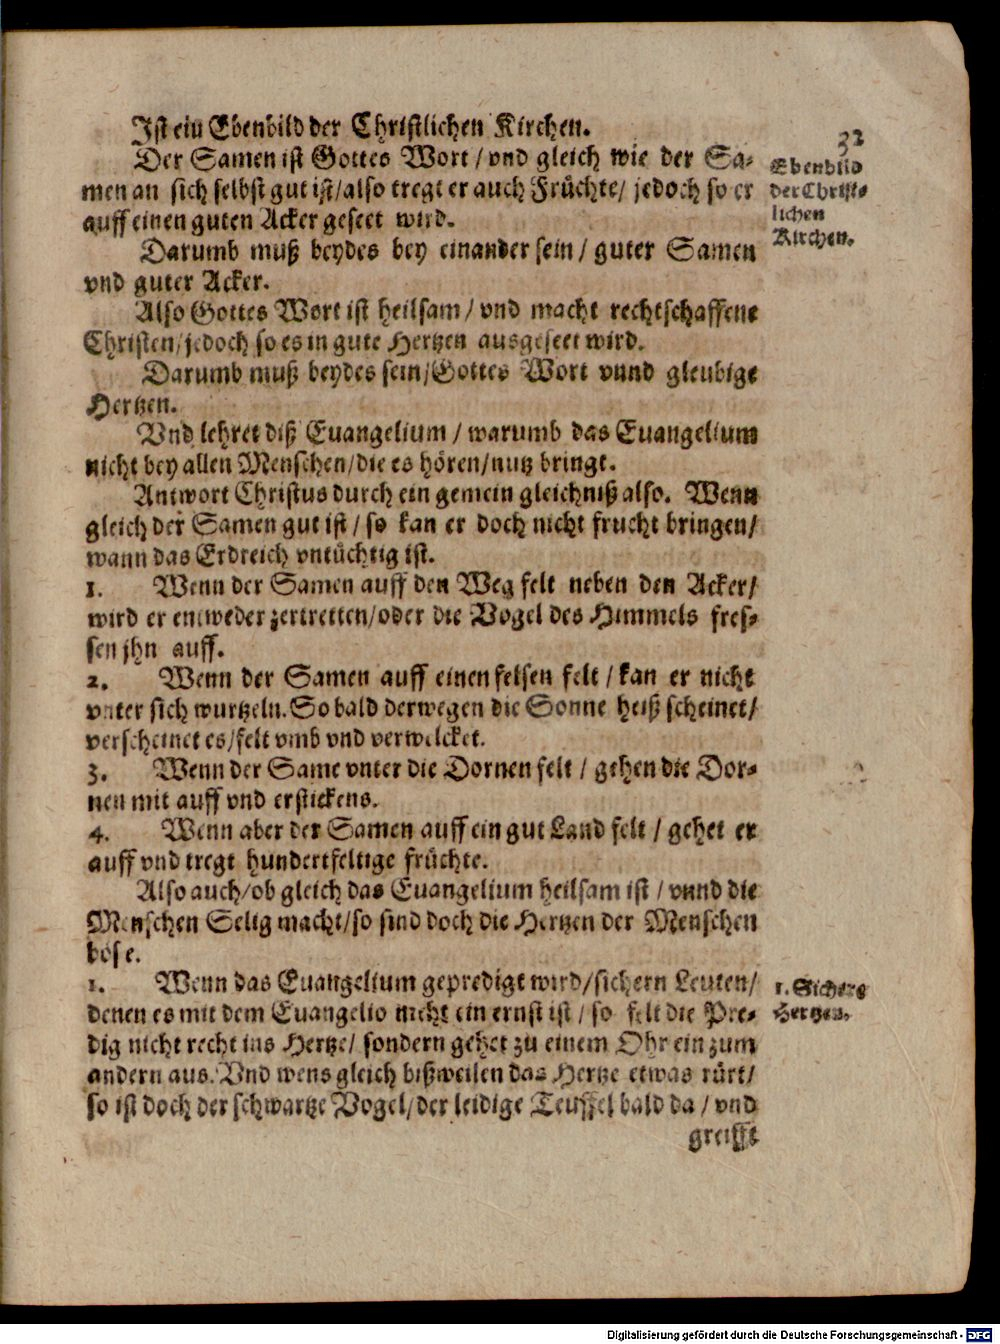 Ist ein Ebenbild der Christlichen Kirchen.
32
Der Samen ist Gottes Wort / vnd gleich wie der Sa-
men an sich selbst gut ist/also tregt er auch Früchte/ jedoch so er
auff einen guten Acker geseet wird.
Ebenbild
der Christ-
lichen
Kirchen.
Darumb muß beydes bey einander sein / guter Samen
vnd guter Acker.
Also Gottes Wort ist heilsam / vnd macht rechtschaffene
Christen/jedoch so es in gute Hertzen ausgeseet wird.
Darumb muß beydes sein/Gottes Wort vnnd gleubige
Hertzen.
Vnd lehret diß Euangelium / warumb das Euangelium
nicht bey allen Menschen/die es hören/nutz bringt.
Antwort Christus durch ein gemein gleichniß also. Wenn
gleich der Samen gut ist / so kan er doch nicht frucht bringen/
wann das Erdreich vntüchtig ist.
1. Wenn der Samen auff den Weg felt neben den Acker/
wird er entweder zertretten/oder die Vogel des Himmels fres-
sen jhn auff.
2. Wenn der Samen auff einen felsen felt / kan er nicht
vnter sich wurtzeln. So bald derwegen die Sonne heiß scheinet/
verscheinet es/felt vmb vnd verwelcket.
3. Wenn der Same vnter die Dornen felt / gehen die Dor-
nen mit auff vnd erstickens.
4. Wenn aber der Samen auff ein gut Land felt / gehet er
auff vnd tregt hundertfeltige früchte.
Also auch/ob gleich das Euangelium heilsam ist / vnnd die
Menschen Selig macht/so sind doch die Hertzen der Menschen
böse.
1. Wenn das Euangelium gepredigt wird/sichern Leuten/
denen es mit dem Euangelio nicht ein ernst ist / so felt die Pre-
dig nicht recht ins Hertze/ sondern gehet zu einem Ohr ein zum
andern aus. Vnd wens gleich bißweilen das Hertze etwas rürt/
so ist doch der schwartze Vogel/der leidige Teuffel bald da / vnd
1. Sichere
Hertzen.
greifft
Digitalisierung gefördert durch die Deutsche Forschungsgemeinschaft - DFG